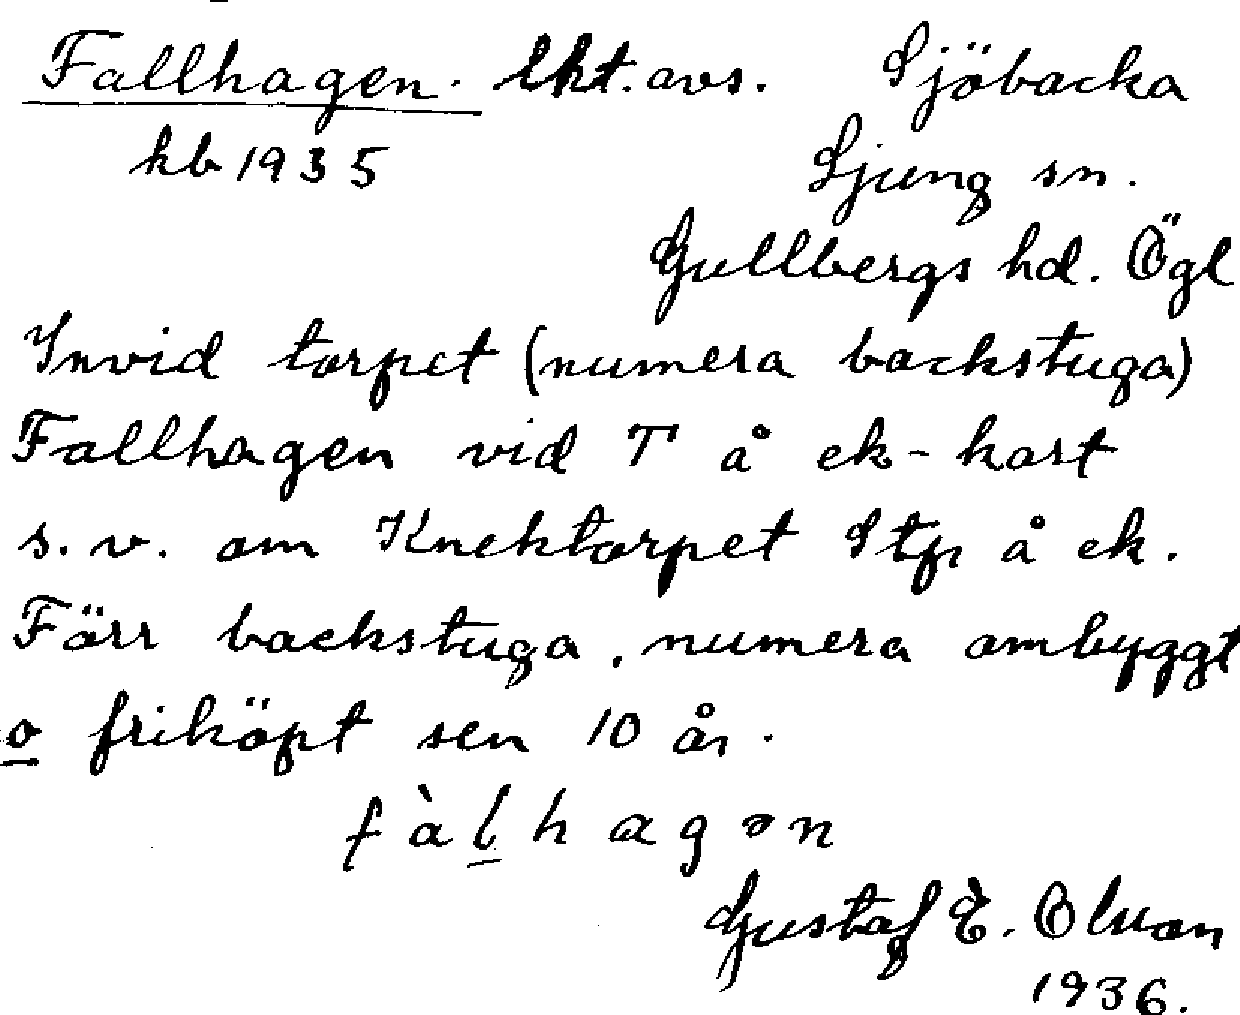 Fallhagen. lht. avs. Sjöbacka
kb 1935 Ljung sn.
Gullbergs hd. Ögl
Invid torpet (numera backstuga)
Fallhagen vid T å ek-kart
s.v. om Knektorpet Stp å ek.
Förr backstuga, numera ombyggt
o friköpt sen 10 år.
fàlhagən
Gustaf E. Olson
1936.